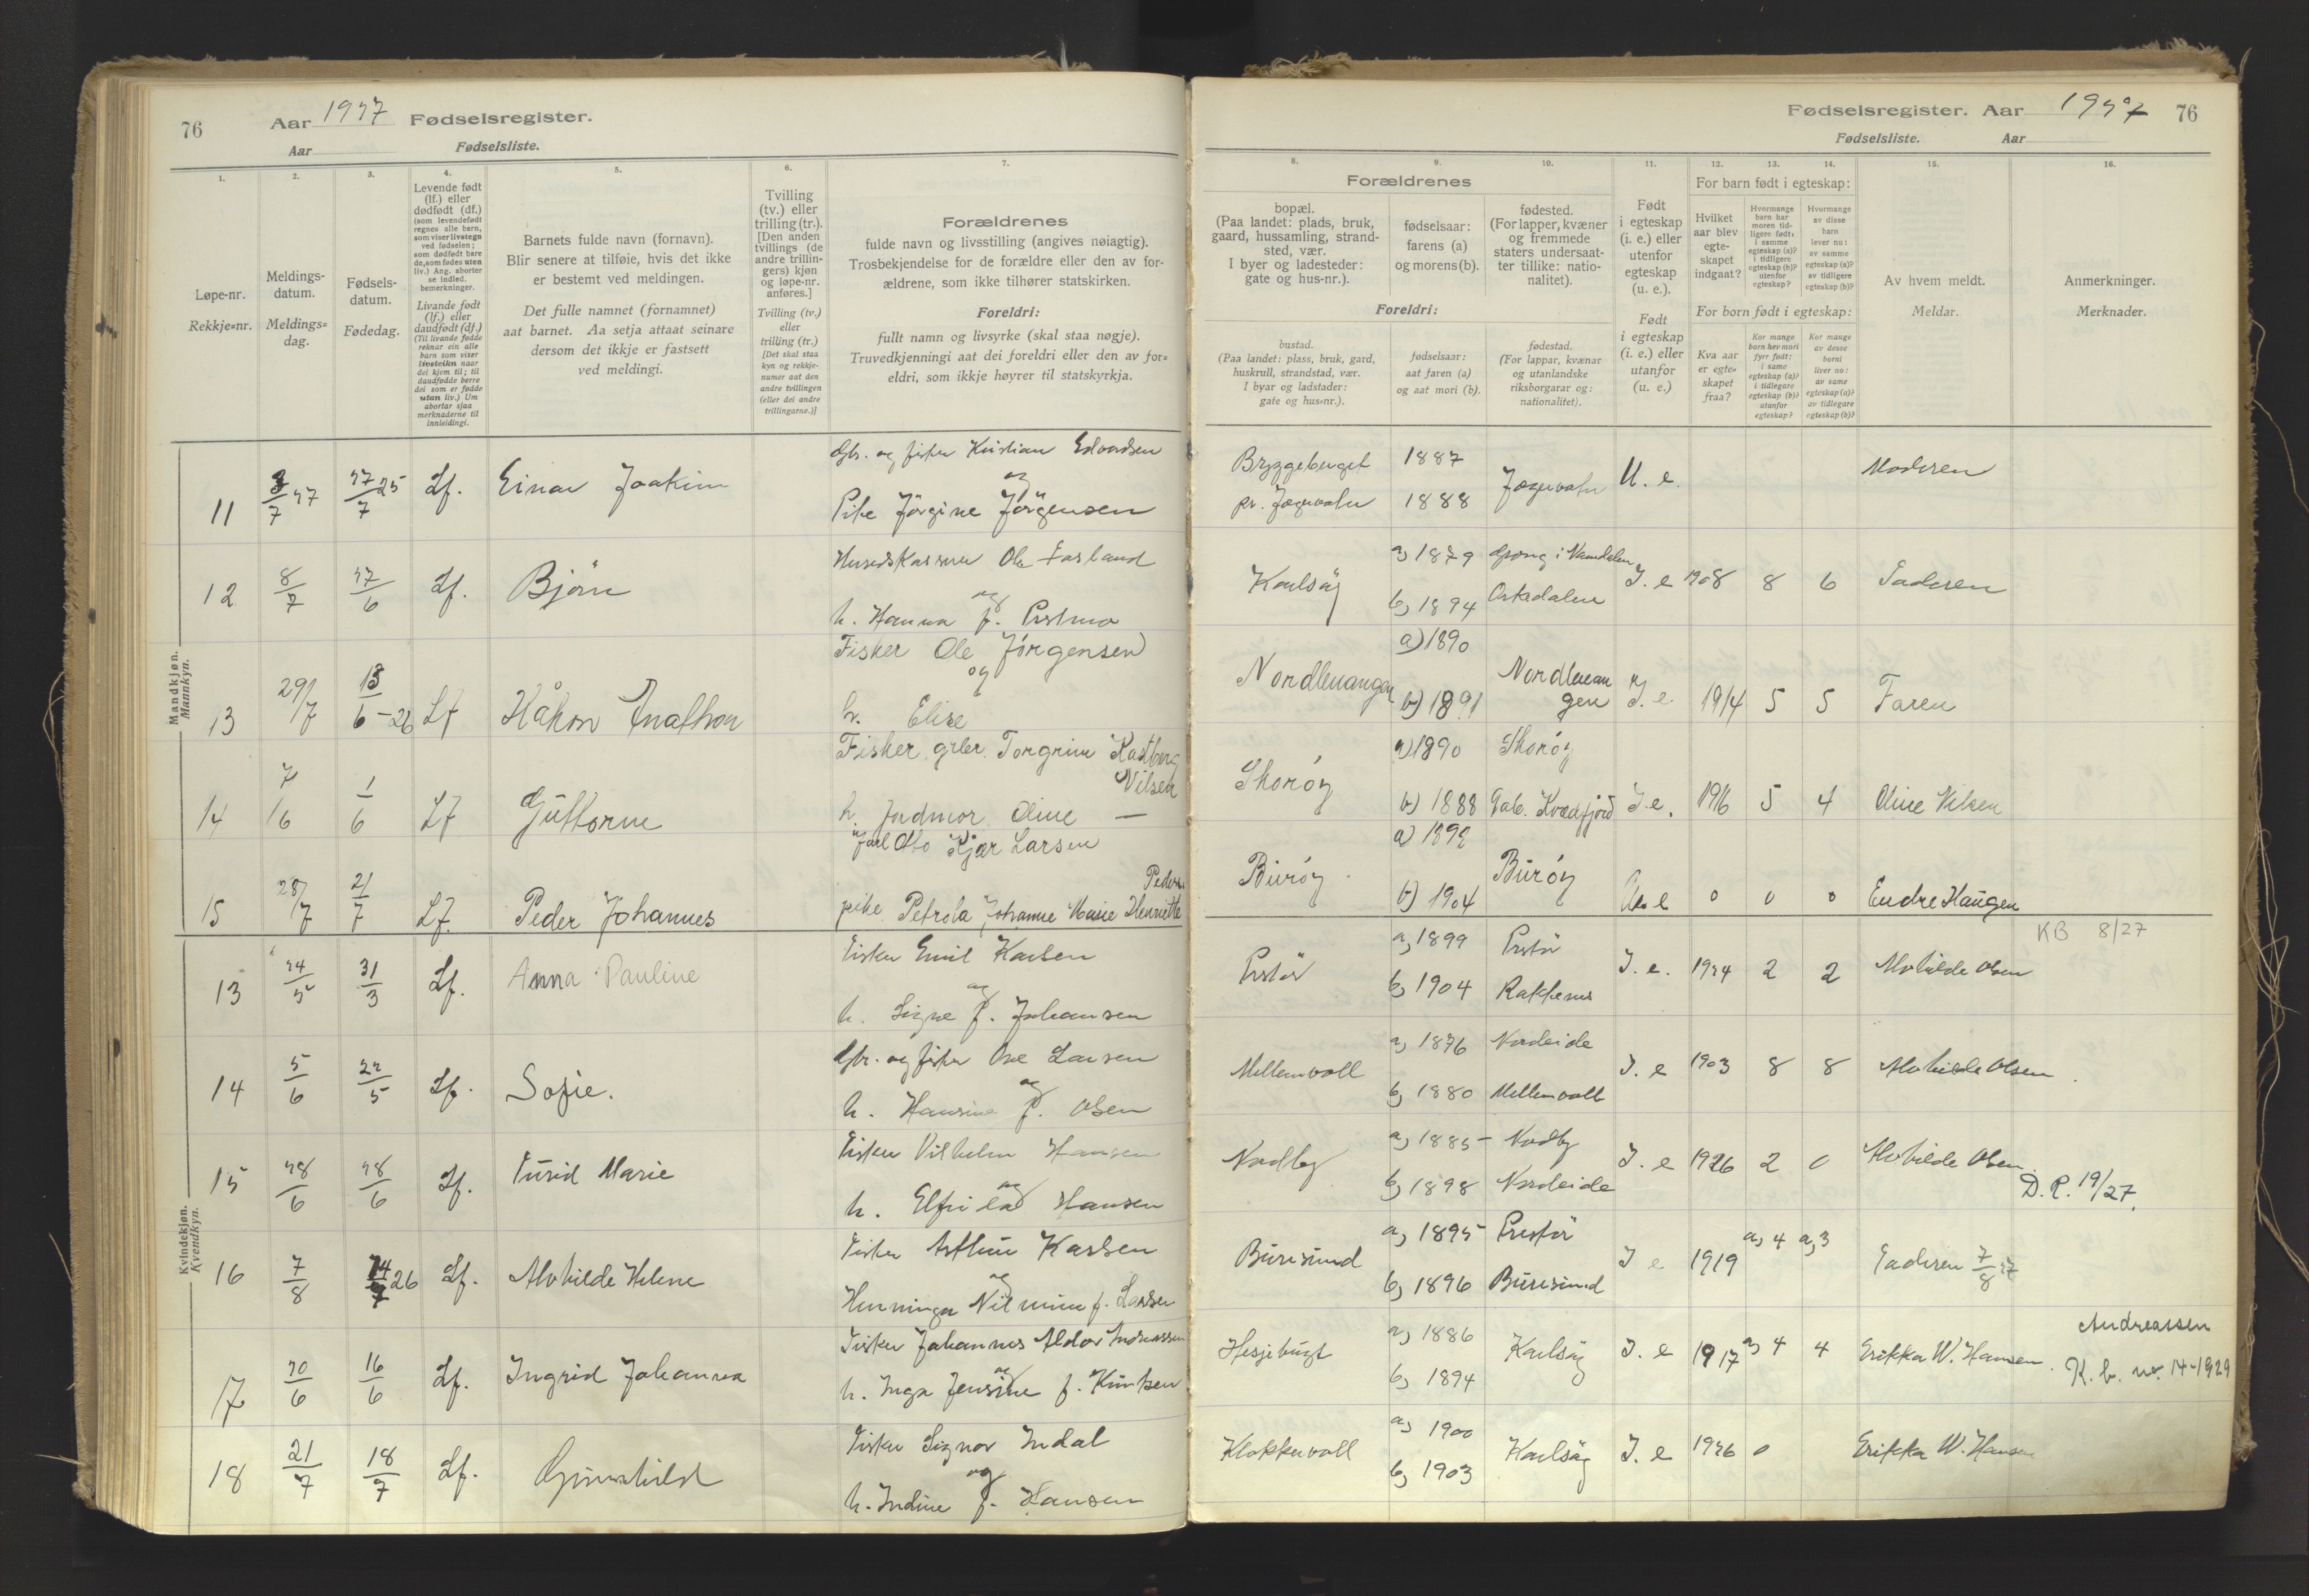 76
Aar 1927 Fødselsregister.
Aar Fødselsliste.
1.
2.
3.
4.
5.
6.
7.
Løpe-nr.
Rekkje=nr.
Meldings-
datum.
Meldings=
dag.
Fødsels-
datum.
Fødedag.
Levende født
(lf.) eller
dødfødt (df.)
(som levendefødt
regnes alle barn,
som viser livstegn
ved fødselen;
som dødfødt bare
de, som fødes uten
liv.) Ang. aborter
se indled.
bemerkninger.
Livande født
(lf.) eller
daudfødt (df.)
(Til livande fødde
reknar ein alle
barn som viser
livsteikn naar
dei kjem til; til
daudfødde berre
dei som er fødde
utan liv.) Um
abortar sjaa
merknaderne til
innleidingi.
Barnets fulde navn (fornavn).
Blir senere at tilføie, hvis det ikke
er bestemt ved meldingen.
Det fulle namnet (fornamnet)
aat barnet. Aa setja attaat seinare
dersom det ikkje er fastsett
ved meldingi.
Tvilling
(tv.) eller
trilling (tr.).
[Den anden
tvillings (de
andre trillin-
gers) kjøn
og løpe-nr.
anføres.]
Tvilling (tv.)
eller
trilling (tr.)
[Det skal staa
kyn og rekkje-
numer aat den
andre tvillingen
(eller dei andre
trillingarne.)]
Forældrenes
fulde navn og livsstilling (angives nøiagtig).
Trosbekjendelse for de forældre eller den av for-
ældrene, som ikke tilhører statskirken.
Foreldri:
fullt namn og livsyrke (skal staa nøgje).
Truvedkjenningi aat dei foreldri eller den av for=
eldri, som ikkje høyrer til statskyrkja.
Mandkjøn.
Mannkyn.
11 3/7 27 27/7 25 Lf. Einar Joakim
Gbr. og fisker Kristian Edvardsen
og
Pike Jörgine Jörgensen
12 8/7 27/6 Lf. Bjørn
Herredskasserer Ole Fosland
og
h. Hanna f. Prestmo
13 29/7 13/6 - 26 Lf Håkon Enathon
Fisker Ole Jörgensen
og
h. Elise
14 7/6 1/6 Lf Guttorm
Fisker. grbr. Torgrim Kastberg
Nilsen
h. Indmor Oline —
15 28/7 21/7 Lf. Peder Johannes
Jarl Otto Kjær Larsen
Peders.
pike Petrola Johanne Marie Henriette
Kvindekjøn.
Kvendkyn.
13 24/5 31/3 Lf. Anna Pauline
Fisker Emil Karlsen
og
h. Signe f. Johansen
14 5/6 22/5 Lf. Sofie.
Gbr. og fisker Ose Larsen
og
h. Hansine f. Olsen
15 28/6 28/6 Lf. Turid Marie
Fisker Vilhelm Hansen
og
h. Elfrida Hansen
16 7/8 26 Lf. Alvhilde Helene
Fisker Arthur Karlsen
og
Henninga Vilmine f. Larsen
17 20/6 16/6 Lf. Ingrid Johanna
Fisker Johannes Aldor Andreassen
og
h. Inga Jensine f. Knutsen
18 21/7 18/7 Lf. Gunhild
Fisker Signor Indal
og
h. Indine f. Hansen
Fødselsregister. Aar 1927 76
Fødselsliste. Aar
8.
9.
10.
11.
12.
13.
14.
15.
16.
Forældrenes
bopæl.
(Paa landet: plads, bruk,
gaard, hussamling, strand-
sted, vær.
I byer og ladesteder:
gate og hus-nr.).
fødselsaar:
farens (a)
og morens (b).
fødested.
(For lapper, kvæner
og fremmede
staters undersaat-
ter tillike: natio-
nalitet).
Foreldri:
bustad.
(Paa landet: plass, bruk, gard,
huskrull, strandstad, vær.
I byar og ladstader:
gate og hus=nr.).
fødselsaar:
aat faren (a)
og aat mori (b).
fødestad.
(For lappar, kvænar
og utanlandske
riksborgarar og:
nationalitet).
Født
i egteskap
(i. e.) eller
utenfor
egteskap
(u. e.).
Født
i egteskap
(i. e.) eller
utanfor
(u. e.)
For barn født i egteskap:
Hvilket
aar blev
egte-
skapet
indgaat?
Hvormange
barn har
moren tid-
ligere født:
i samme
egteskap (a)?
i tidligere
egteskap (b)?
utenfor
egteskap?
Hvormange
av disse
barn
lever nu:
av samme
egteskap (a)?
av tidligere
egteskap (b)?
For born født i egteskap:
Kva aar
er egte=
skapet
fraa?
Kor mange
born hev mori
fyrr født:
i same
egteskap (a)?
i tidlegare
egteskap (b)?
utanfor
egteskap?
Kor mange
av desse
borni
liver no:
av same
egteskap (a)?
av tidlegare
egteskap (b)?
Av hvem meldt.
Meldar.
Anmerkninger.
Merknader.
Bryggeberget 1887
pr. Jægervatn 1888 Jægervatn U. e. Moderen
Karlsöy a) 1879 Grong i Namdalen
b) 1894 Orkedalen I. e 1908 8 6 Faderen
Nordlenangen a) 1890
b) 1891 Nordlenan
gen I. e. 1914 5 5 Faren
Skoröy a) 1890 Skoröy
b) 1888 Gab. Kvæfjord I. e. 1916 5 4 Oline Nilsen
Buröy a) 1892
b) 1904 Buröy U. e 0 0 0 Endre Haugen
KB 8/27
a) 1899
b) 1904 Rakkenes I. e. 1924 2 2 Alvhilde Olsen
Mellemvoll a) 1876 Nordeide
b) 1880 Mellemvoll I. e 1903 8 8 Alvhilde Olsen
Nordby a) 1885 Nordby
b) 1898 Nordeide I. e 1926 2 0 Alvhilde Olsen.
D. R. 19/27.
Buresund a) 1895
b) 1896 Buresund I e 1919 a) 4 a) 3 Faderen 7/8 27
Hesjebugt a) 1886
b) 1894 Karlsöy I. e 1917 a) 4 4 Erikka W. Hansen.
Andreassen
K. b. nr. 14-1929
Klokkervoll a) 1900
b) 1903 Karlsöy I. e 1926 0 Erikka W. Hansen